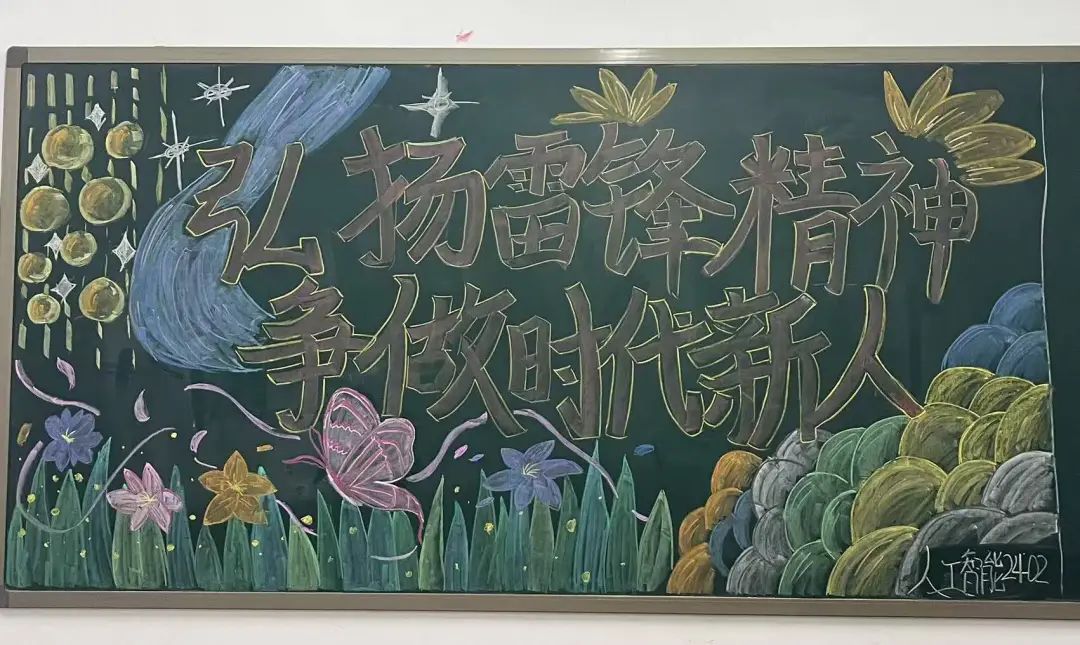 弘扬雷锋精神
争做时代新人
人工智能2402